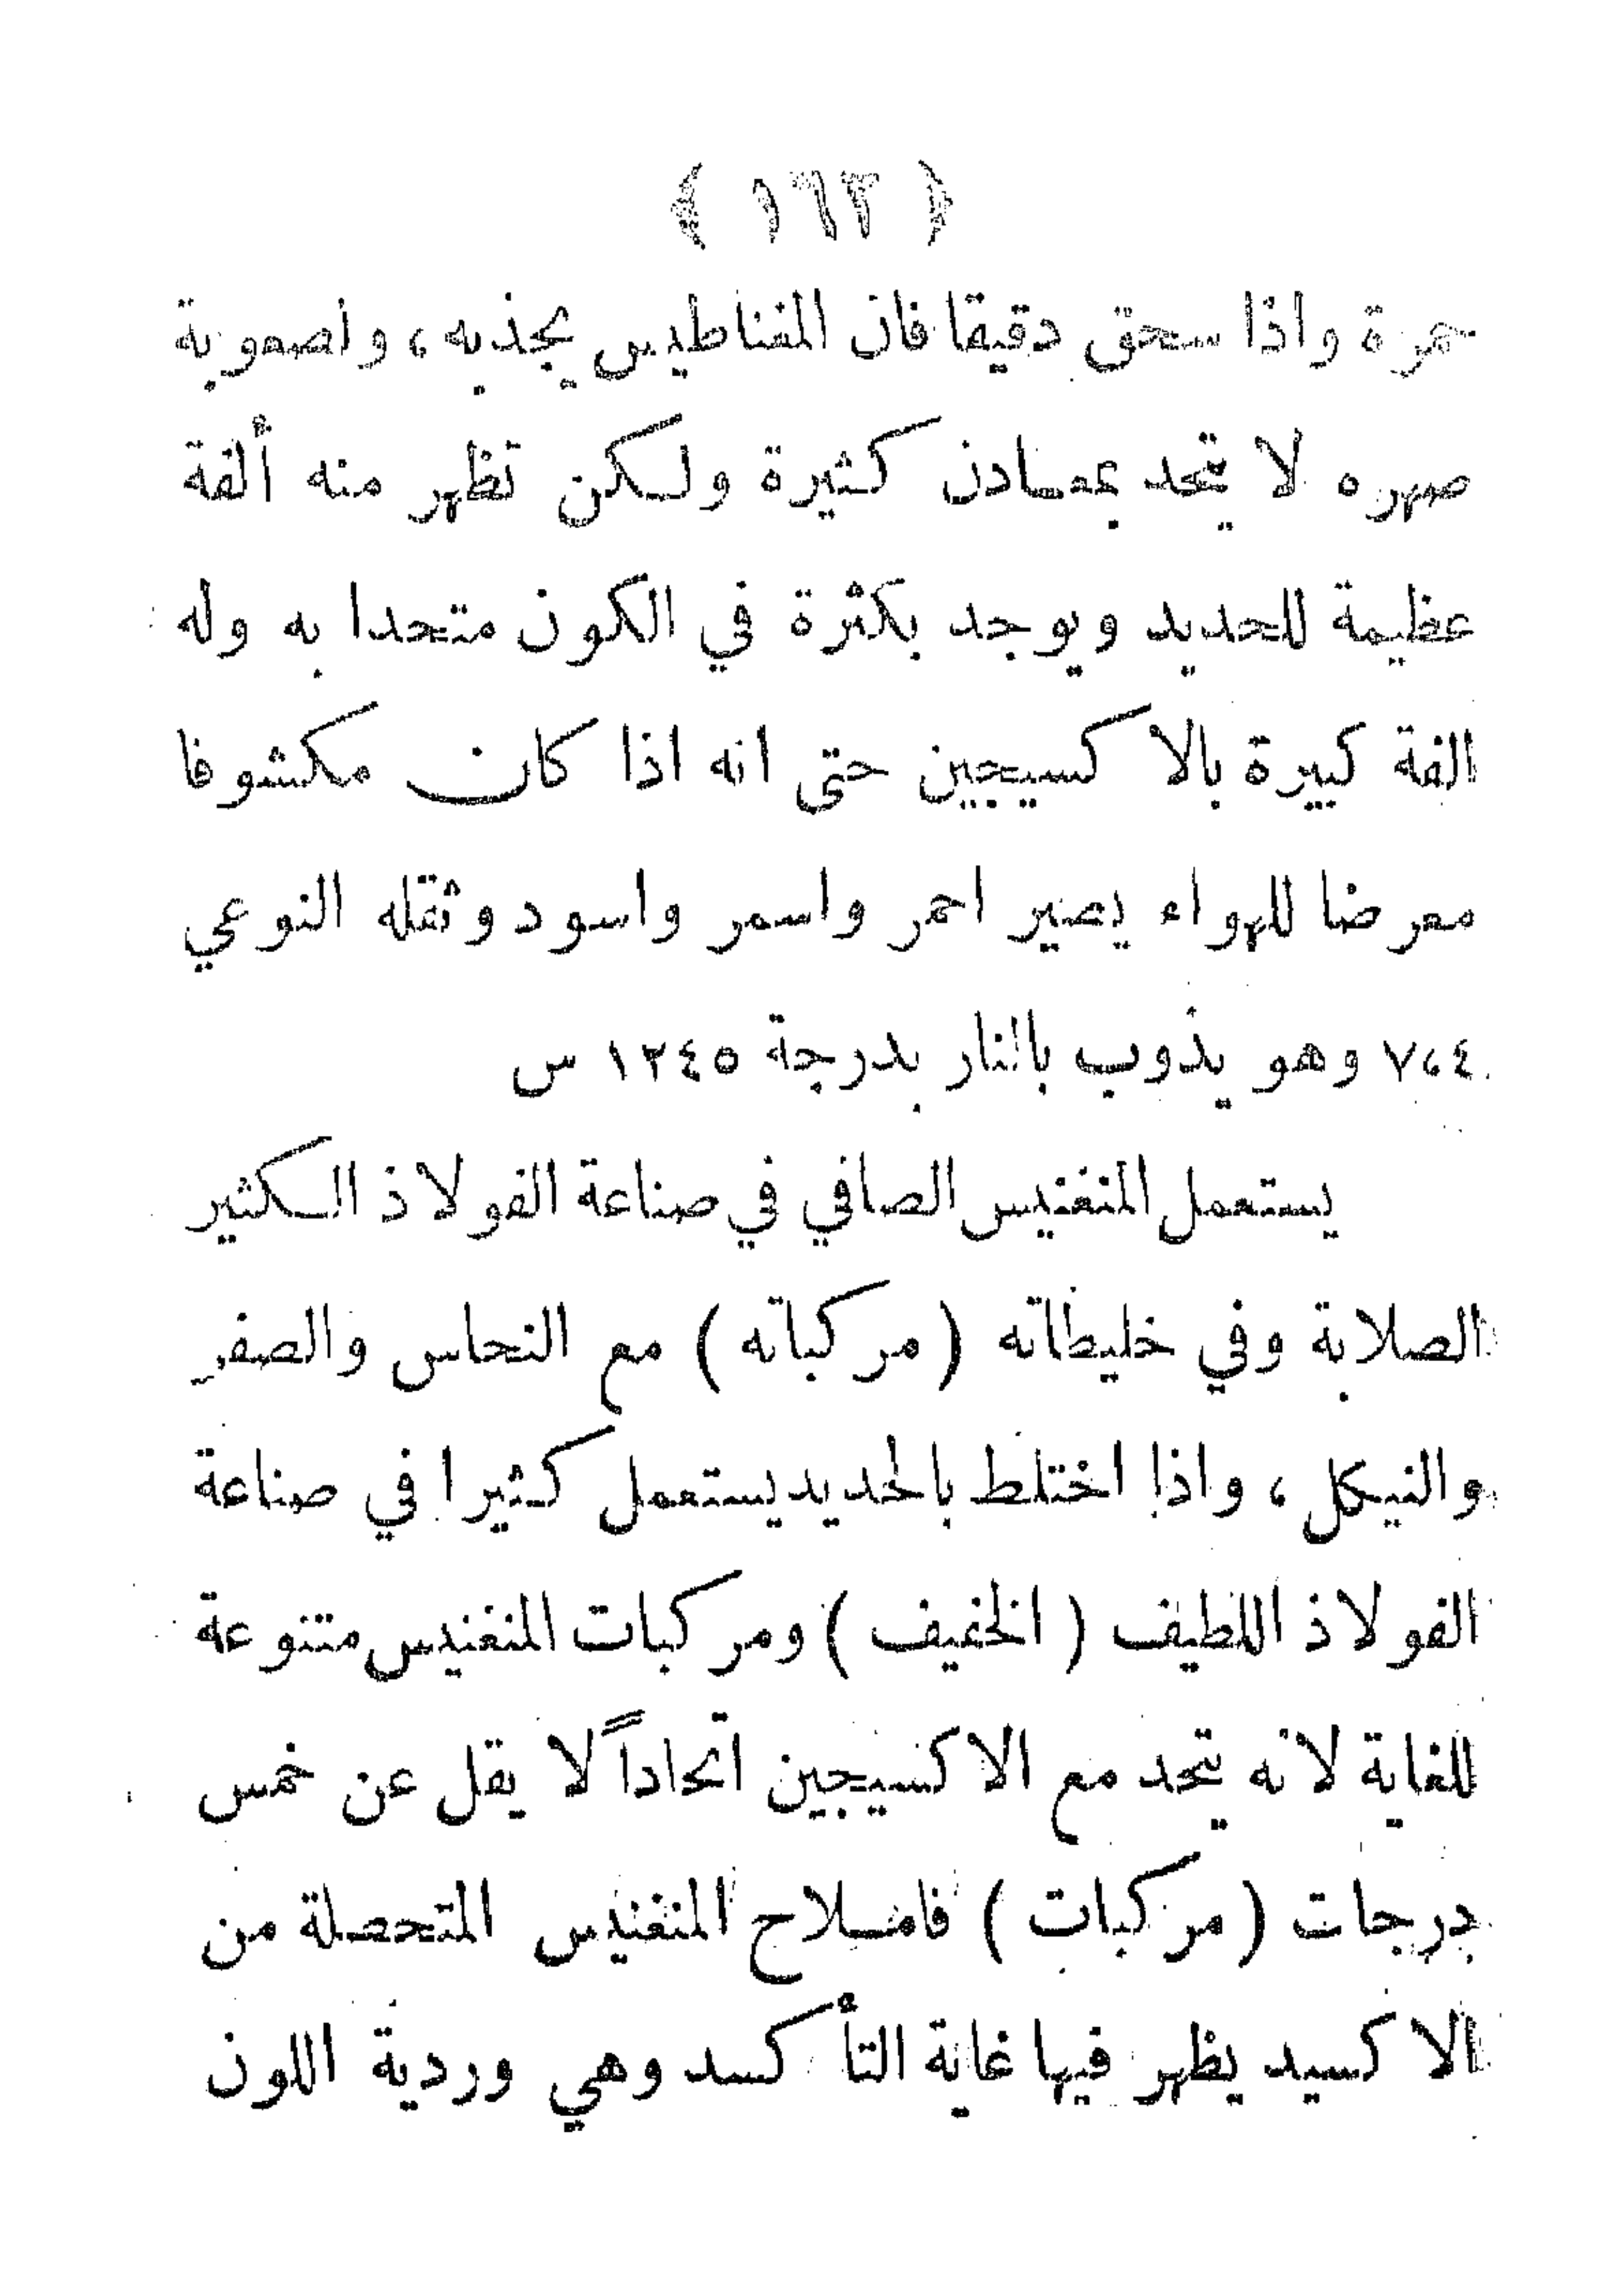 ﴿ ١٦٣ ﴾
حمرة واذا سحق دقيقا فان المغناطيس يجذبه ، ولصعوبة
صهره لا يتحد بمعادن كثيرة ولكن تظهر منه ألفة
عظيمة للحديد ويوجد بكثرة في الكون متحدا به وله
الفة كبيرة بالاكسيجين حتى انه اذا كان مكشوفا
معرضا للهواء يصير احمر واسمر واسود وثقله النوعي
٧،٤ وهو يذوب بالنار بدرجة ١٢٤٥ س
يستعمل المنغنيس الصافي في صناعة الفولاذ الكثير
الصلابة وفي خليطاته ( مركباته ) مع النحاس والصفر
والنيكل ، واذا اختلط بالحديد يستعمل كثيرا في صناعة
الفولاذ اللطيف ( الخفيف ) ومركبات المنغنيس متنوعة
للغاية لانه يتحد مع الاكسيجين اتحاداً لا يقل عن خمس
درجات ( مركبات ) فاملاح المنغنيس المتحصلة من
الاكسيد يظهر فيها غاية التأكسد وهي وردية اللون